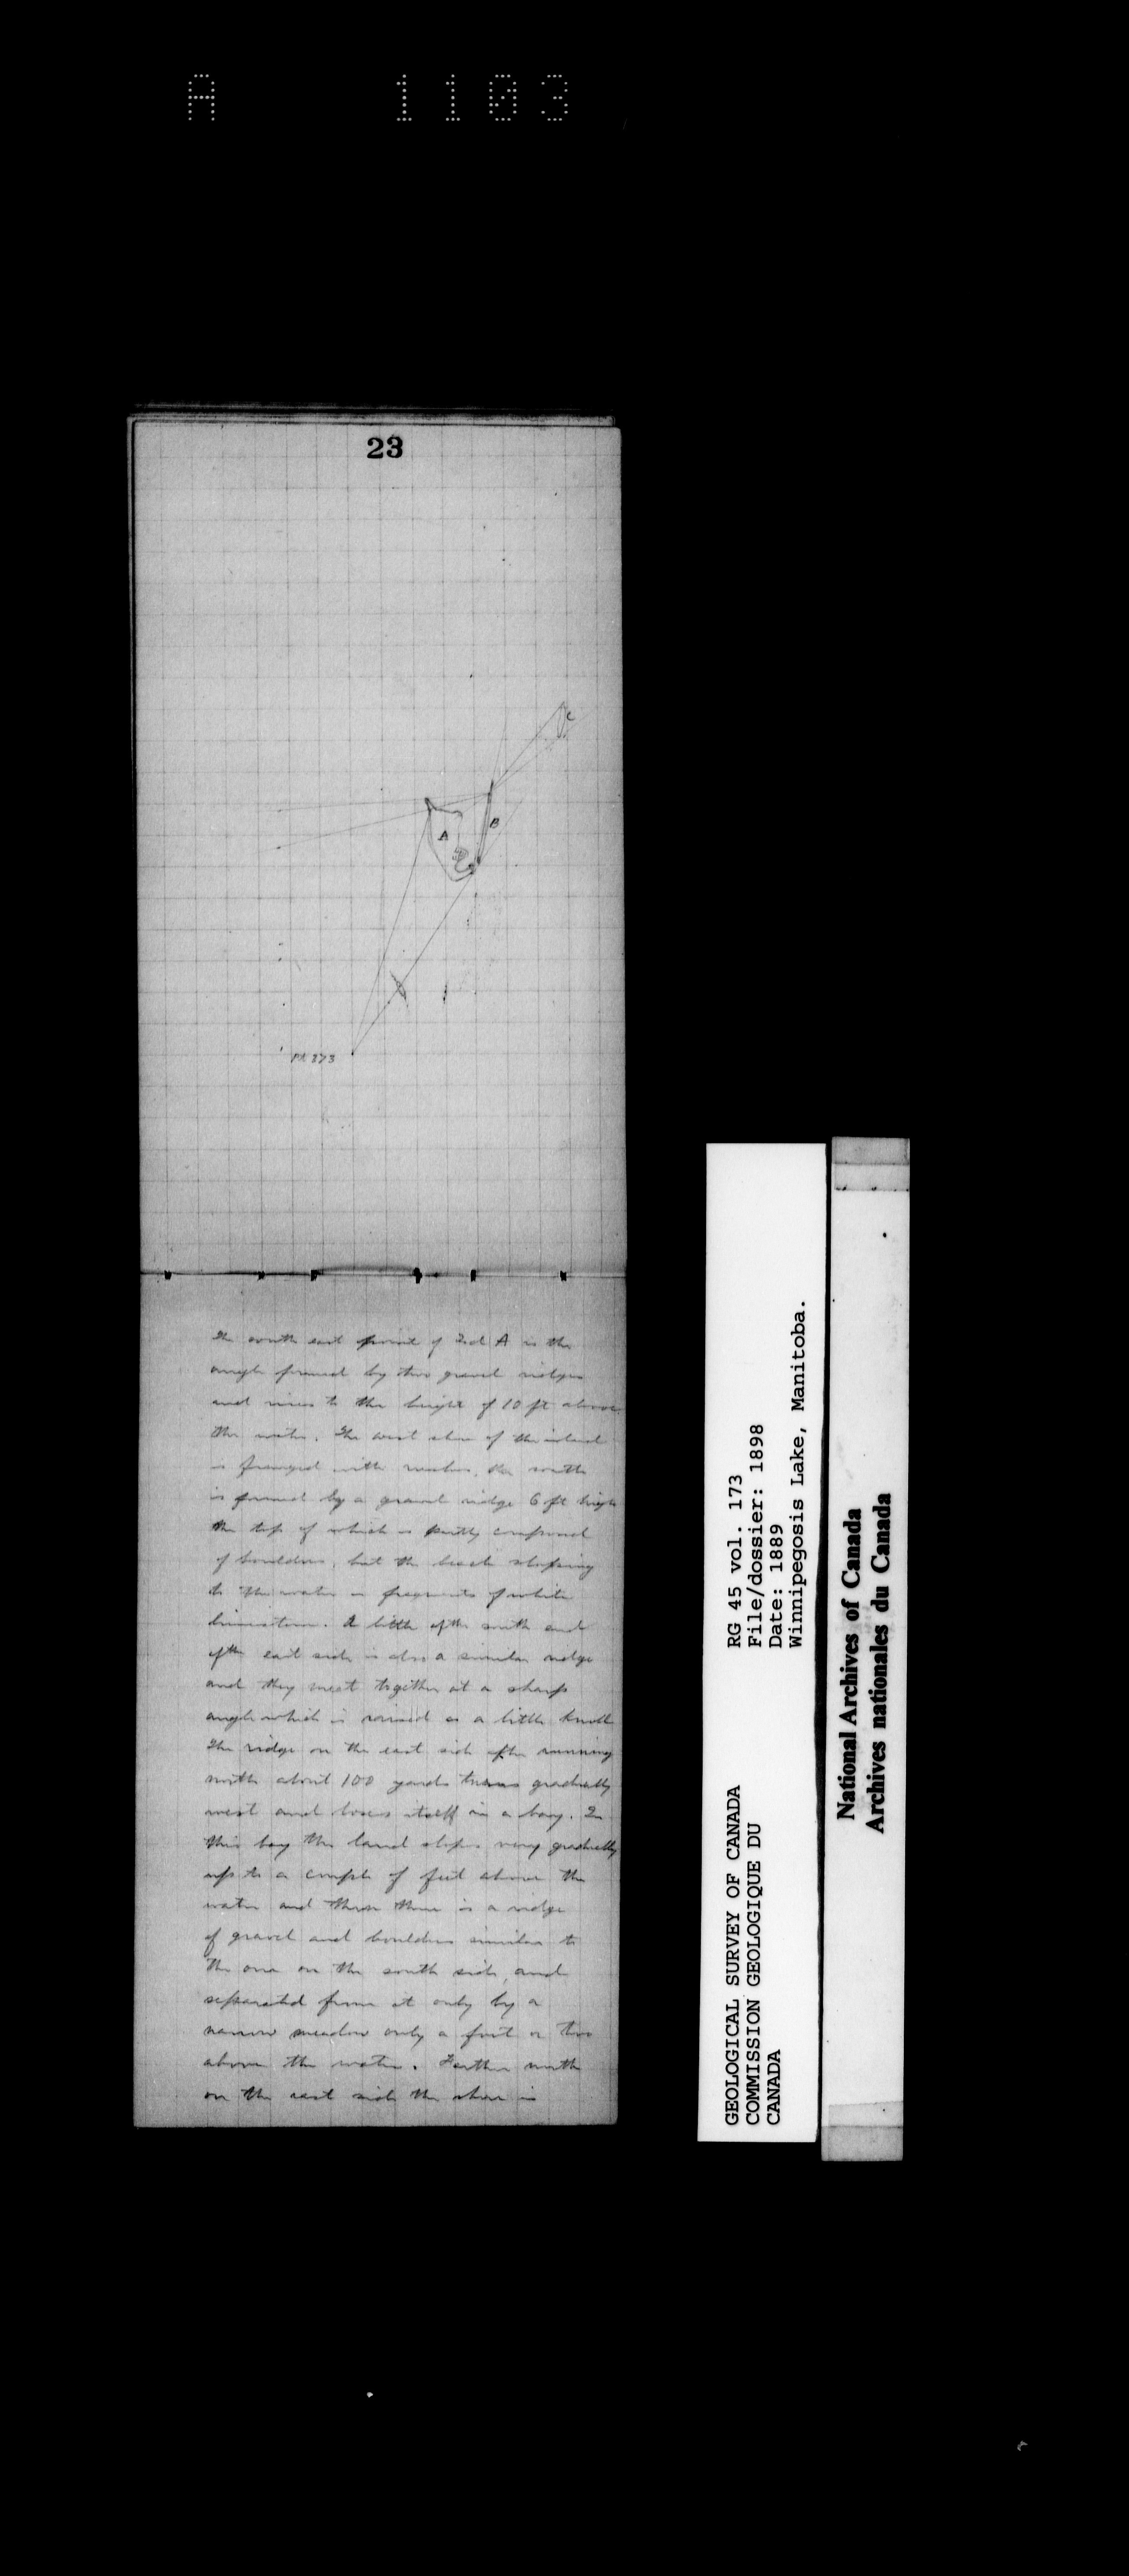 A 1103
23
C
A
B
Pt. 273
The south east point of Isd A is the
angle formed by two gravel ridges
and rises to the height of 10 ft above
the water. The west shore of the island
is fringed with rushes, the south
is formed by a gravel ridge 6 ft high
the top of which is partly composed
of boulders, but the beach sloping
to the water is fragments of white
limestone. A little of the south end
of the east side is also a similar ridge
and they meet together at a sharp
angle which is raised as a little knoll
The ridge on the east side after running
north about 100 yards turns gradually
west and loses itself in a bay. In
this bay the land slopes very gradually
up to a couple of feet above the
water and then there is a ridge
of gravel and boulders similar to
the one on the south side, and
separated from it only by a
narrow meadow only a foot or two
above the water. Farther north
on the east side the shore is
GEOLOGICAL SURVEY OF CANADA
COMMISSION GEOLOGIQUE DU
CANADA
RG 45 vol. 173
File/dossier: 1898
Date: 1889
Winnipegosis Lake, Manitoba.
National Archives of Canada
Archives nationales du Canada